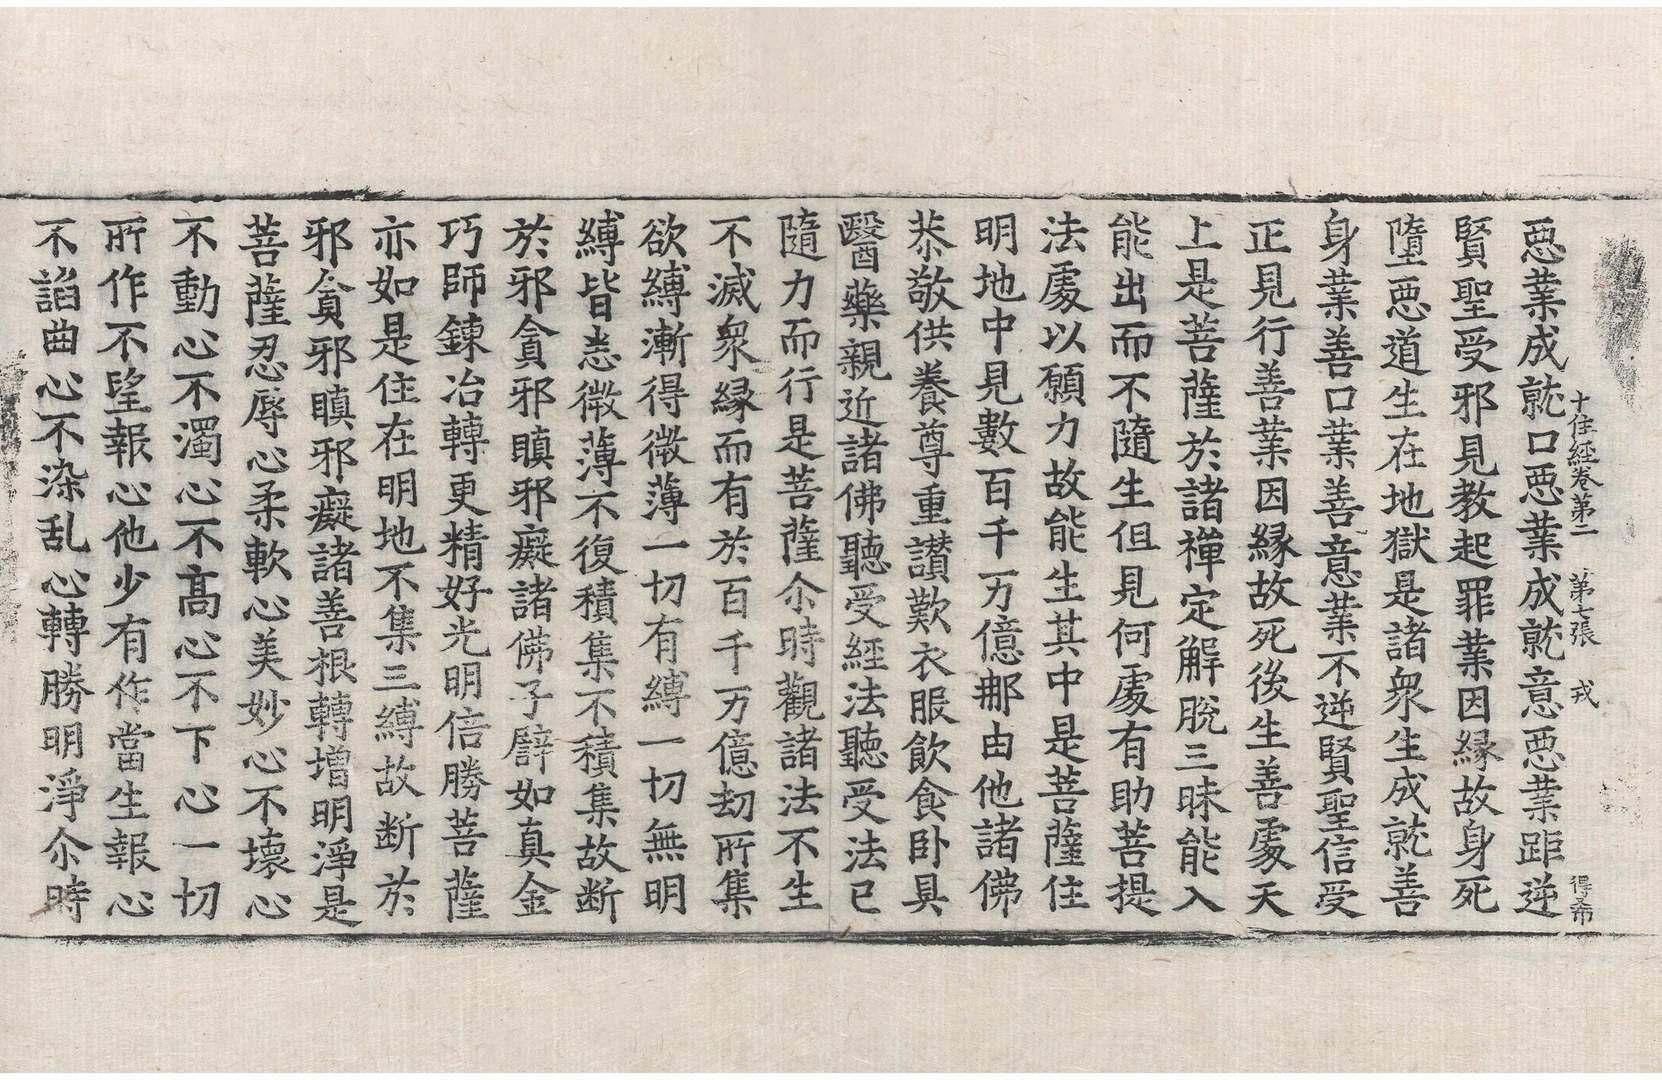 十住經卷第二 第七張 戎 得希
惡業成就口惡業成就意惡業距逆
賢聖受邪見教起罪業因緣故身死
墮惡道生在地獄是諸衆生成就善
身業善口業善意業不逆賢聖信受
正見行善業因緣故死後生善處天
上是菩薩於諸禪定解脫三昧能入
能出而不隨生但見何處有助菩提
法處以願力故能生其中是菩薩住
明地中見數百千万億那由他諸佛
恭敬供養尊重讃歎衣服飲食卧具
醫藥親近諸佛聽受經法聽受法已
隨力而行是菩薩尒時觀諸法不生
不滅衆緣而有於百千万億劫所集
欲縛漸得微薄一切有縛一切無明
縛皆悉微薄不復積集不積集故断
於邪貪邪瞋邪癡諸佛子譬如真金
巧師鍊冶轉更精好光明倍勝菩薩
亦如是住在明地不集三縛故断於
邪貪邪瞋邪癡諸善根轉增明淨是
菩薩忍辱心柔軟心美妙心不壞心
不動心不濁心不高心不下心一切
所作不望報心他少有作當生報心
不諂曲心不染乱心轉勝明淨尒時